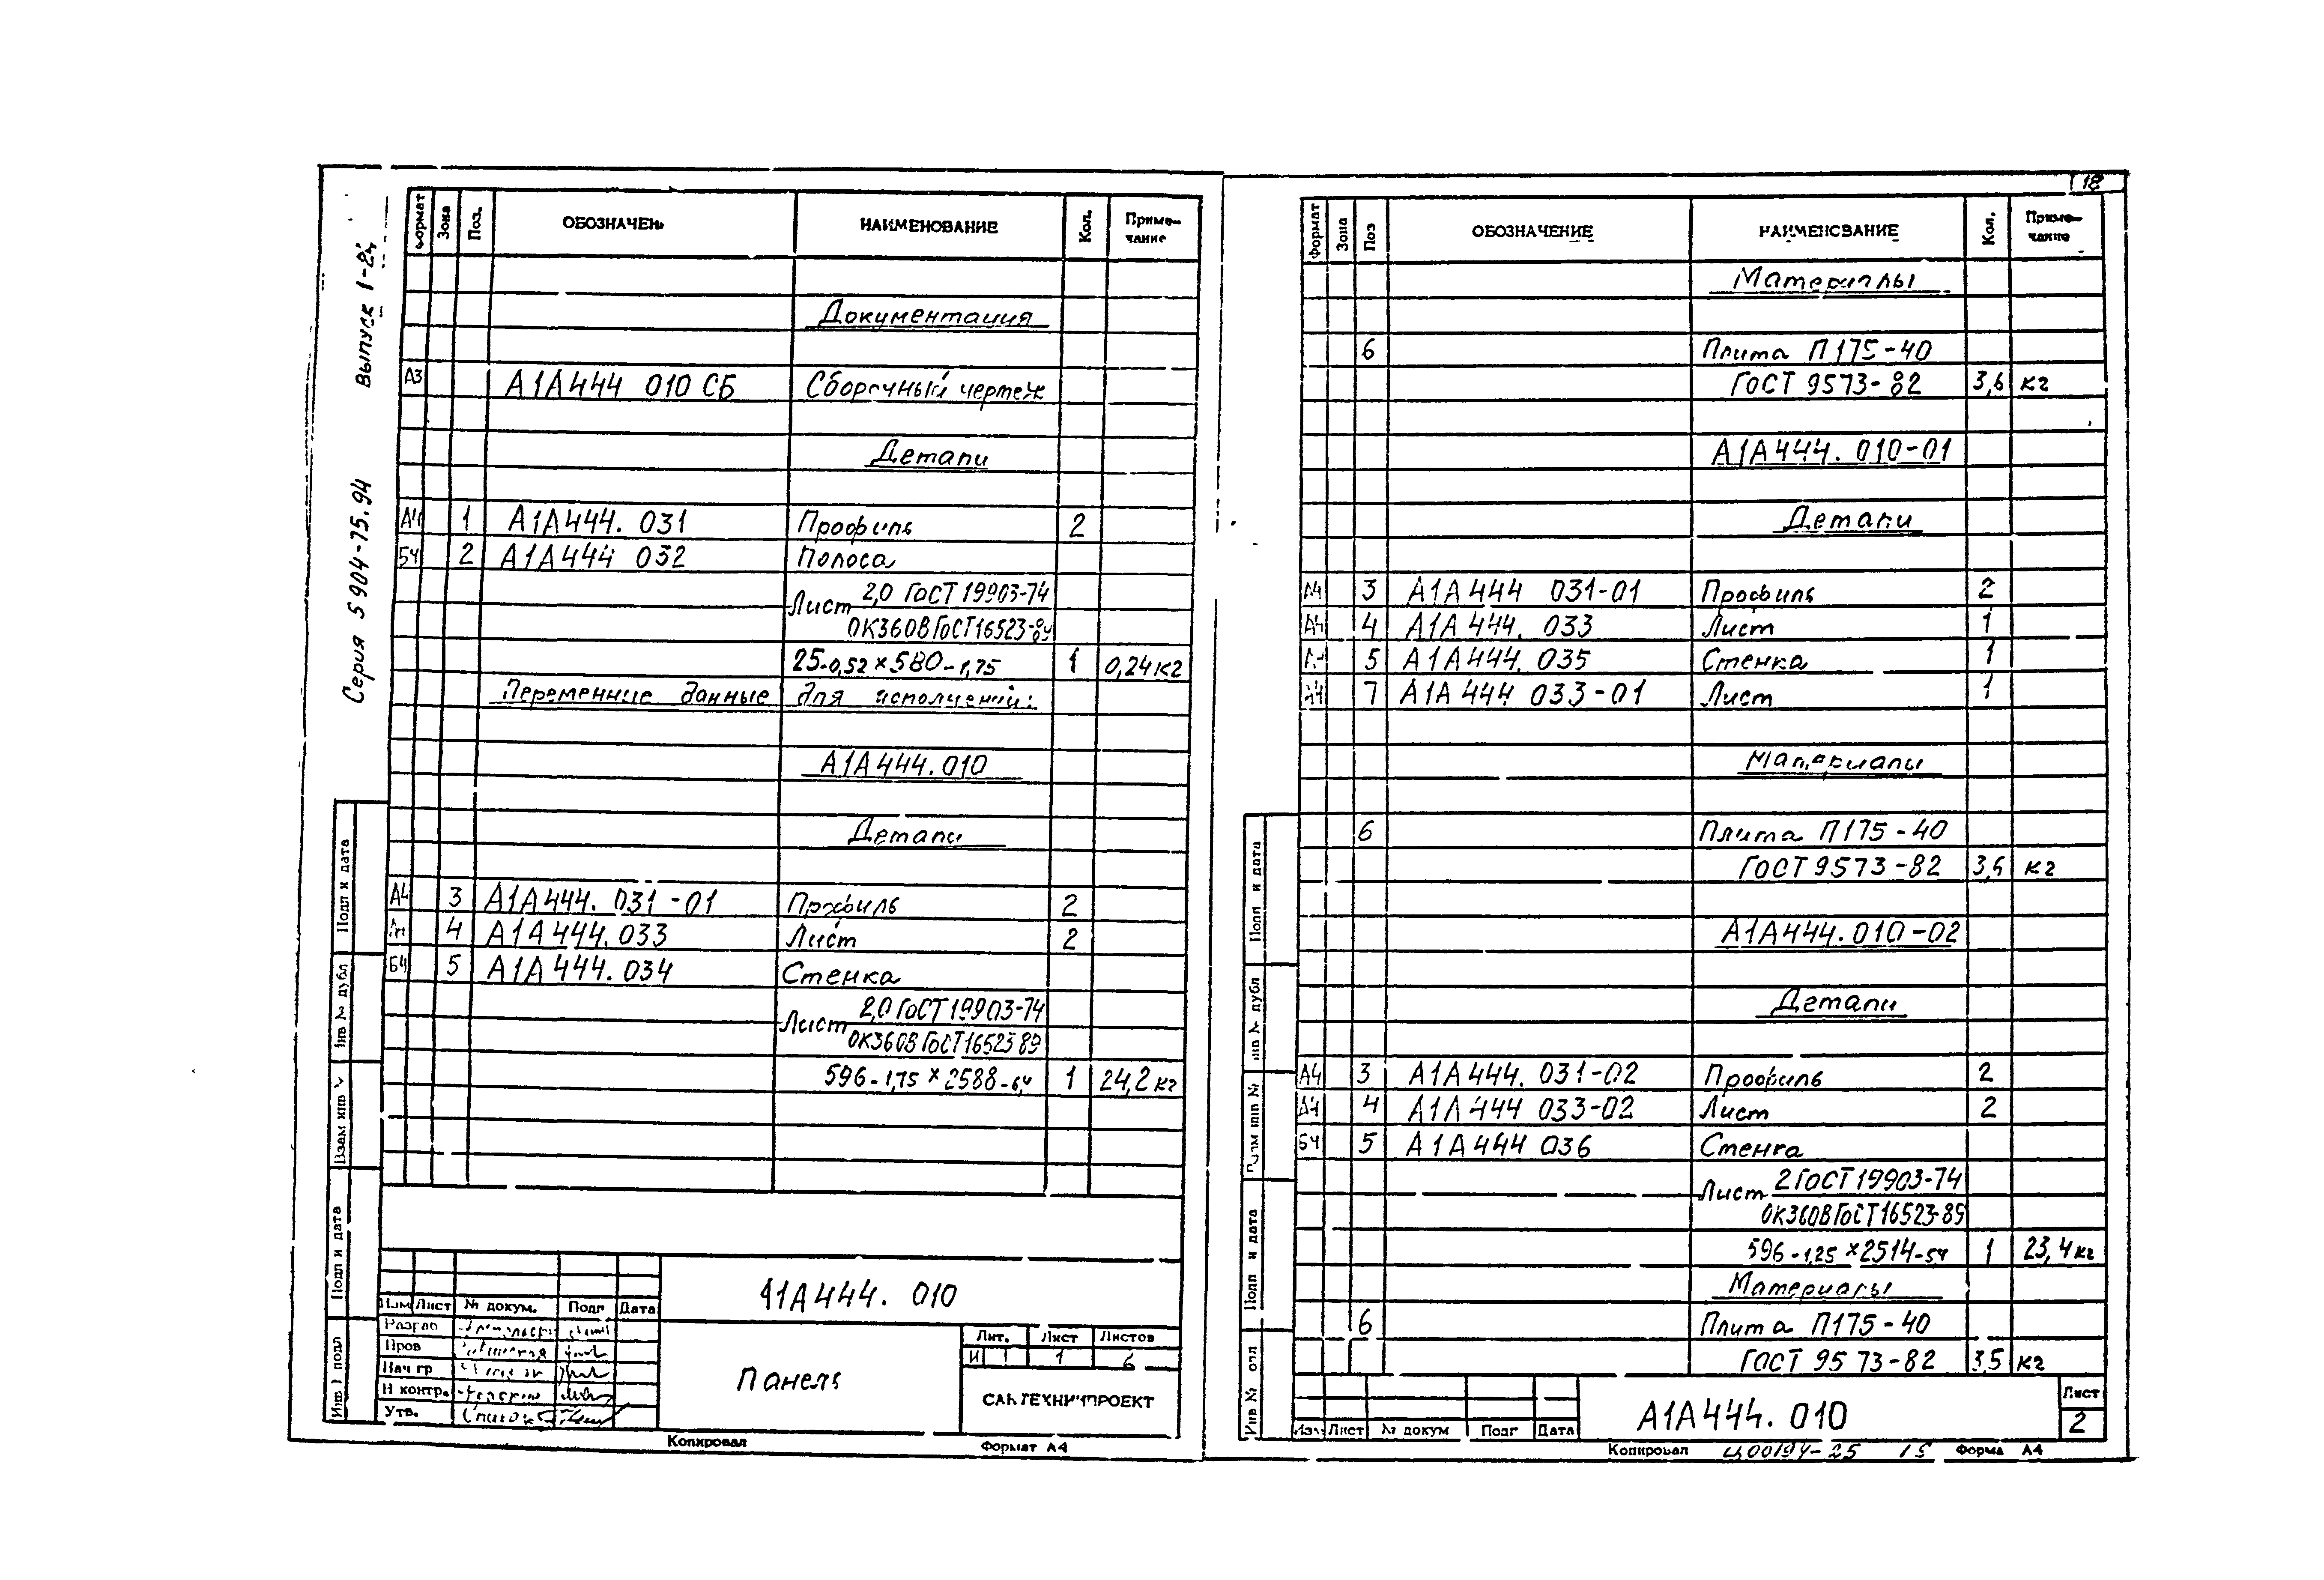 18
Серия 5904-75.94 Выпуск 1-2
Формат Зона Поз. ОБОЗНАЧЕН НАИМЕНОВАНИЕ Кол. Приме-чание
Документация
А3 А1А444 010 СБ Сборочный чертеж
Детали
А4 1 А1А444. 031 Профиль 2
БЧ 2 А1А444 032 Полоса
2,0 ГОСТ 19903-74
Лист
ОК360В ГОСТ 16523-89
25-0,52 × 580-1,75 1 0,24 кг
Переменные данные для исполнений:
А1А444.010
Детали
А4 3 А1А444. 031-01 Профиль 2
А4 4 А1А444.033 Лист 2
БЧ 5 А1А444.034 Стенка
2,0 ГОСТ 19903-74
Лист
ОК360В ГОСТ 16523 89
596-1,75 × 2588-6,4 1 24,2 кг
Подп и дата
Инв № дубл
Взам инв №
Подп и дата
Инв № подл
А1А444. 010
Изм Лист № докум. Подп Дата
Разраб
Пров
Нач гр
Н контр.
Утв.
Панель
Лит. Лист Листов
И 1 6
САНТЕХНИИПРОЕКТ
Копировал Формат А4
Формат Зона Поз ОБОЗНАЧЕНИЕ НАИМЕНОВАНИЕ Кол. Приме-чание
Материалы
6 Плита П175-40
ГОСТ 9573-82 3,6 кг
А1А444. 010-01
Детали
А4 3 А1А444 031-01 Профиль 2
А4 4 А1А444. 033 Лист 1
А4 5 А1А444. 035 Стенка 1
А4 7 А1А444 033-01 Лист 1
Материалы
6 Плита П175-40
ГОСТ 9573-82 3,6 кг
А1А444.010-02
Детали
А4 3 А1А444. 031-02 Профиль 2
А4 4 А1А444 033-02 Лист 2
БЧ 5 А1А444 036 Стенка
2 ГОСТ 19903-74
Лист
ОК360В ГОСТ 16523-89
596-1,25 × 2514-5,4 1 23,4 кг
Материалы
6 Плита П175-40
ГОСТ 9573-82 3,5 кг
Подп и дата
Инв № дубл
Взам инв №
Подп и дата
Инв № подл
Изм Лист № докум Подп Дата
А1А444. 010
Лист
2
Копировал Ц00194-25 15 Форма А4